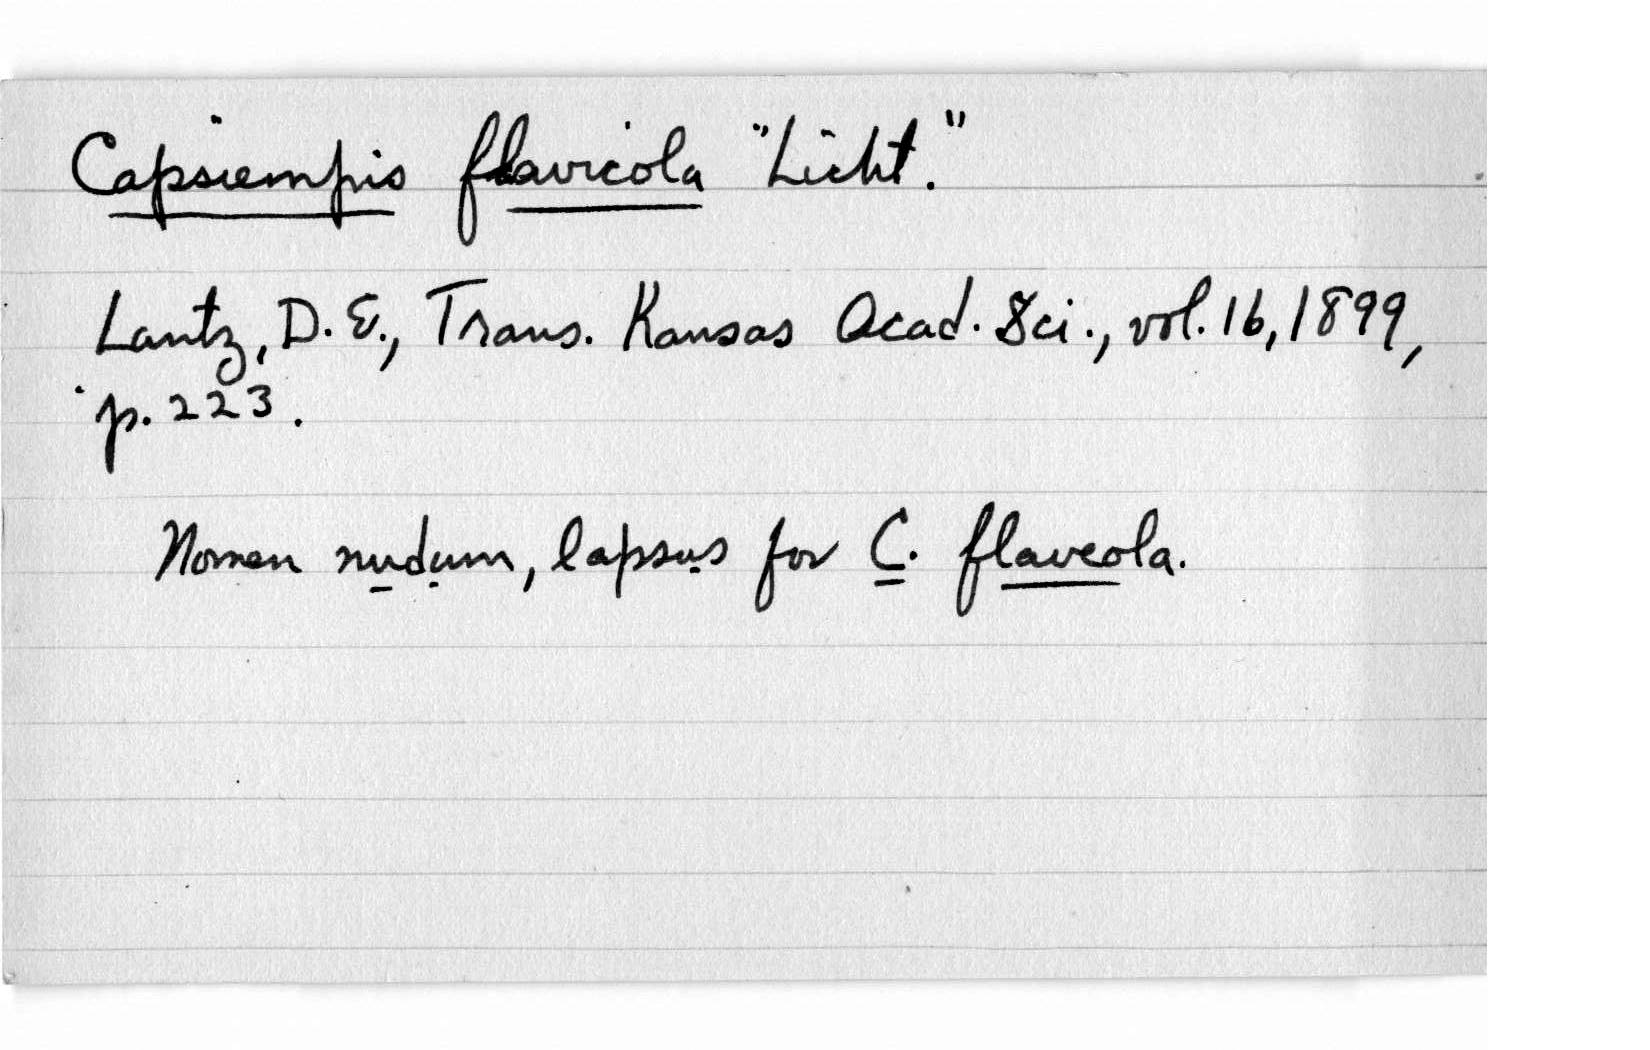 Capsiempis flavicola "Licht."
Lantz, D.E., Trans. Kansas Acad. Sci., vol. 16, 1899,
p. 223.
Nomen nudum, lapsus for C. flaveola.